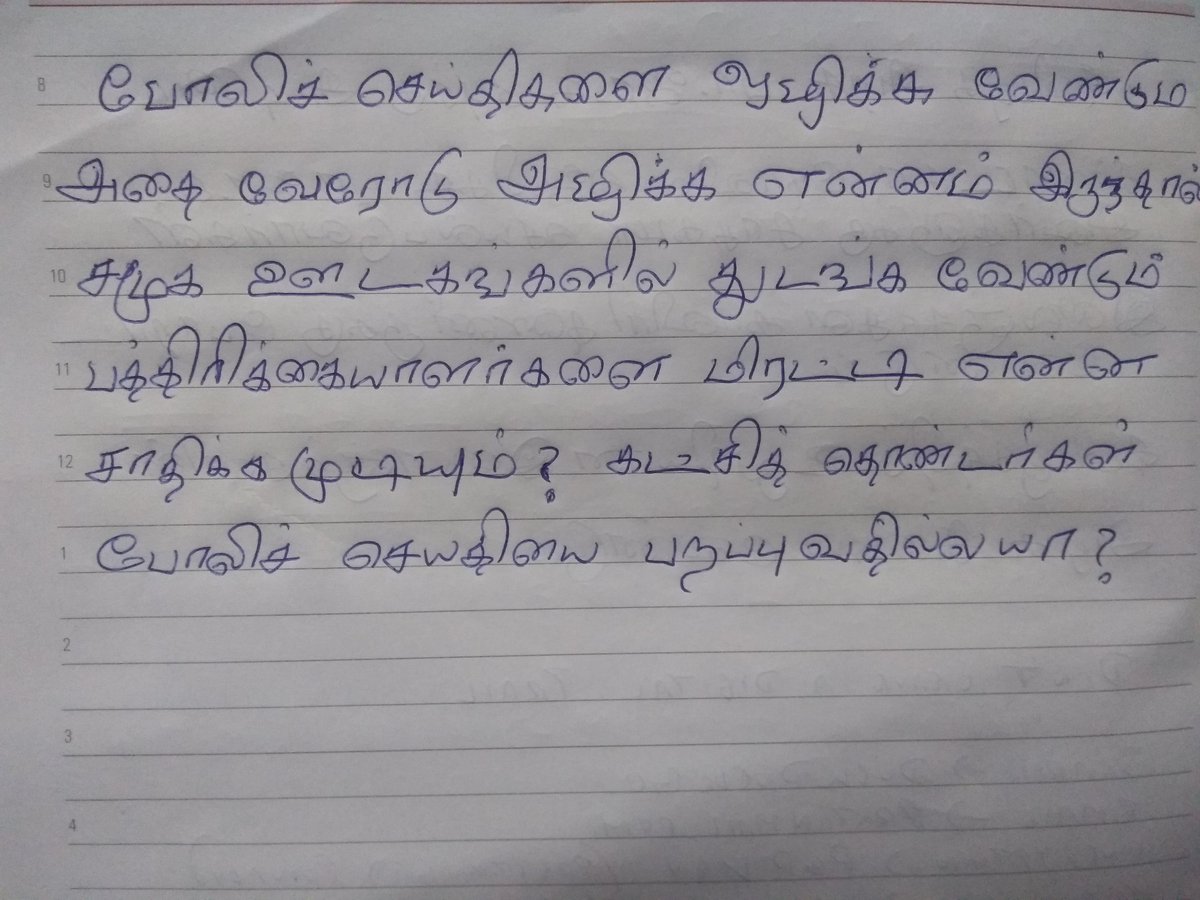 போலிச் செய்திகளை அழிக்க வேண்டும
அதை வேரோடு அழிக்க என்னம் இருந்தால்
சமூக ஊடகங்களில் துடங்க வேண்டும்
பத்திரிக்கையாளர்களை மிரட்டி என்ன
சாதிக்க முடியும்? கட்சித் தொண்டர்கள்
போலிச் செயதியை பறப்புவதில்லயா?
8
9
10
11
12
1
2
3
4